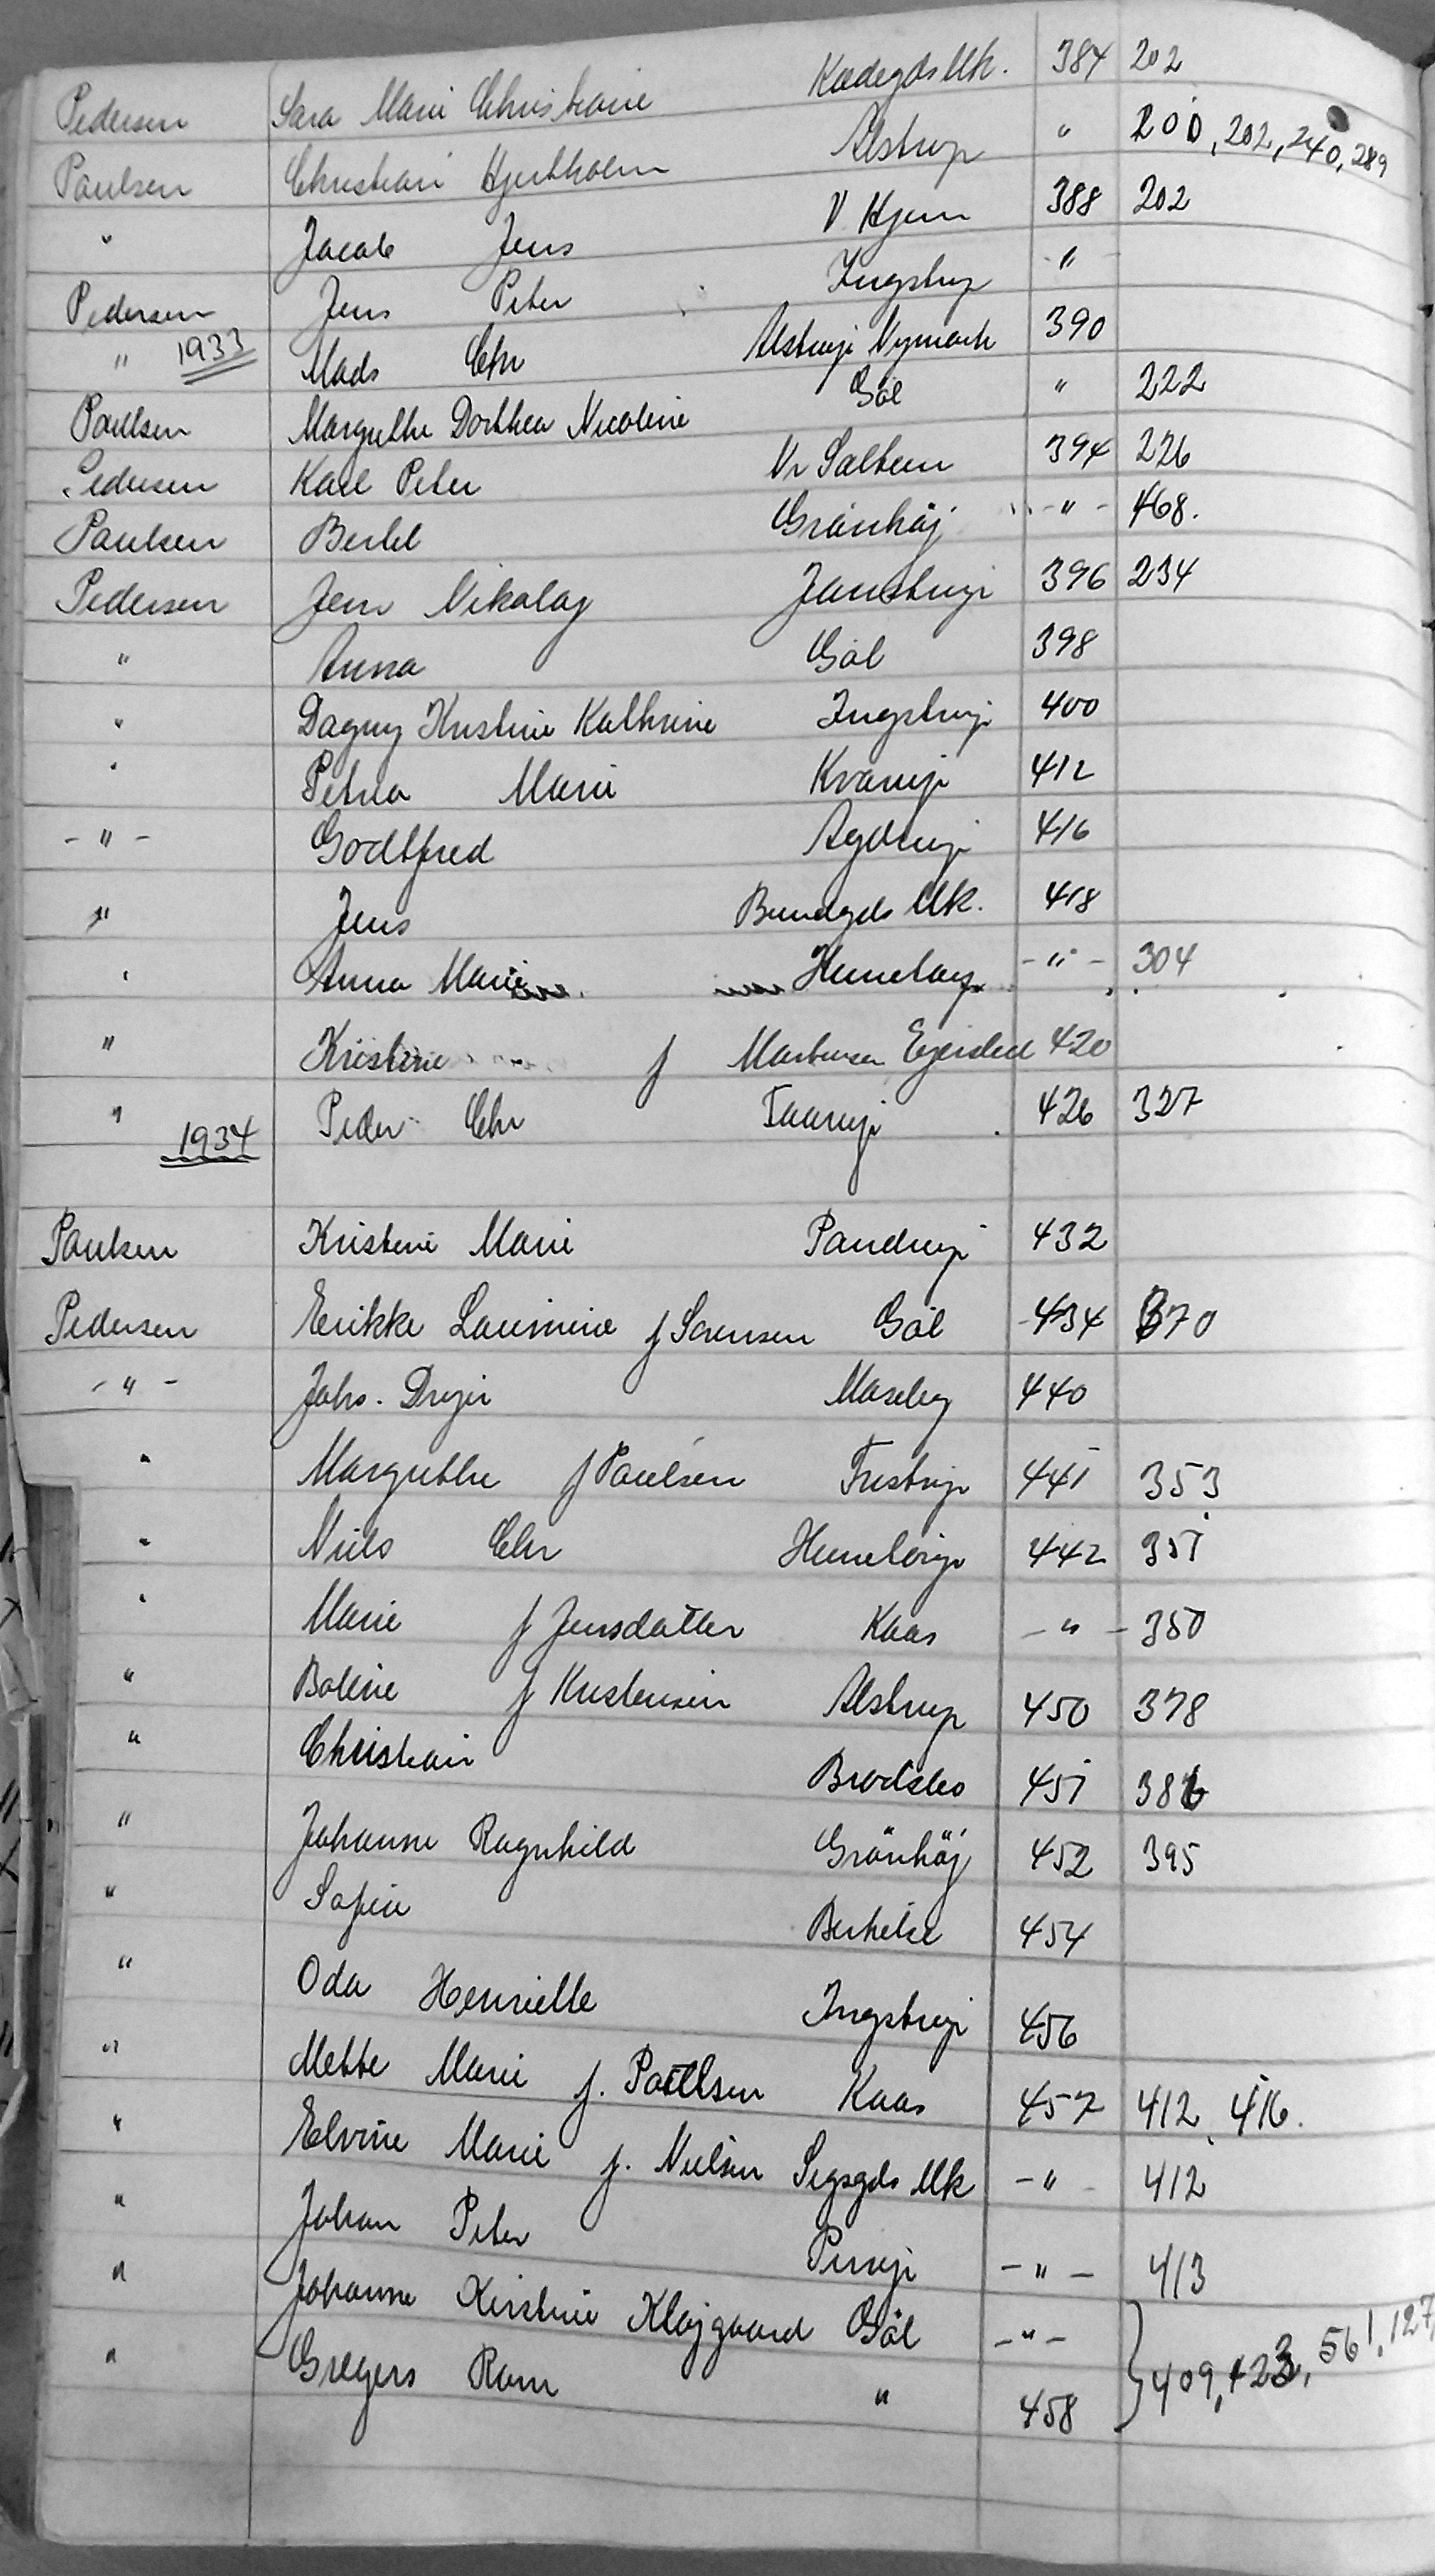 Pedersen Sara Marie Christiane Kodegds Mk. 384 202
Paulsen Christian Hjortholm Alstrup " 200, 202, 240, 289
" Jacob Jens V Hjerm 388 202
Pedersen Jens Peter Ingstrup "
" 1933 Mads Chr Alstrup Nymark 390
Poulsen Margrethe Dorthea Nicoline Gøl " 222
Pedersen Karl Peter Vr Saltum 394 226
Paulsen Bertel Grönhöj - " - 468.
Pedersen Jens Nikolaj Janstrup 396 234
" Anna Gøl 398
" Dagny Kristine Kathrine Ingstrup 400
" Petrea Marie Kvarup 412
- " - Godtfred Agdrup 416
" Jens Bundgds Mk. 418
" Anna Marie Hunetorp - " - 304
" Kristine f Mortensen Ejersted 420
" Peder Chr Taarup 426 327
1934
Poulsen Kristine Marie Pandrup 432
Pedersen Erikke Laurine f Sørensen Gøl 434 370
- " - Johs. Drejer Moseby 440
" Margrethe f Paulsen Trustrup 441 353
" Niels Chr Hunetorp 442 351
" Marie f Jensdatter Kaas - " - 350
" Boline f Kristensen Alstrup 450 378
" Christian Brødslev 451 386
" Johanne Ragnhild Grönhöj 452 395
" Sofie 454
" Oda Henriette Ingstrup 456
" Mette Marie f. Poulsen Kaas 457 412, 416.
" Elvine Marie f. Nielsen Segsgds Mk - " - 412
" Johan Peter Pirup - " - 413
" Johanne Kirstine Klojgaard Gøl - " -
" Gregers Rom " 458 } 409, 423, 561, 127,